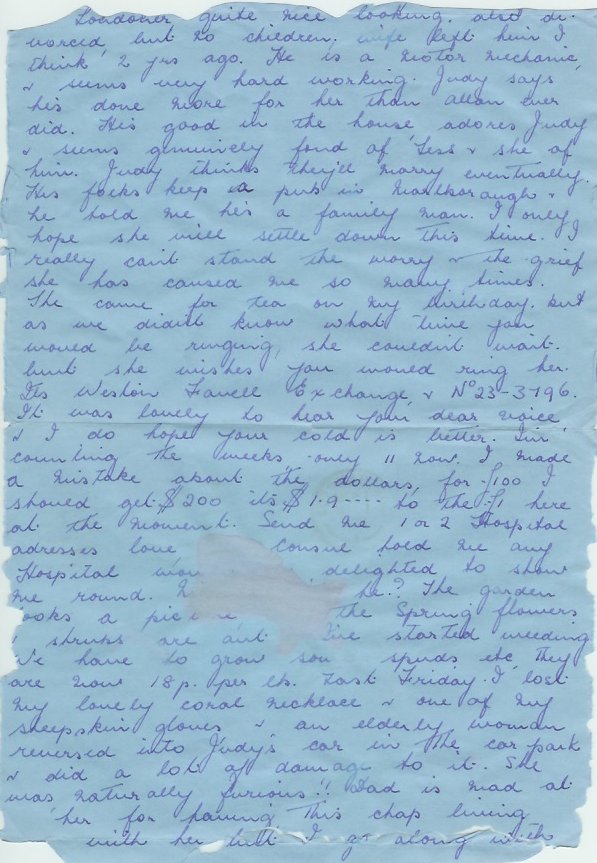 Londoner quite nice looking. also di-
vorced, but no children. wife left him I
think 2 yrs ago. He is a motor mechanic,
& seems very hard working. Judy says
his done more for her than allan ever
did. His good in the house adores Judy
& seems genuinely fond of Tess & she of
him. Judy thinks they'll marry eventually.
His folks keep a pub in Marlborough &
he told me he's a family man. I only
hope she will settle down this time. I
really can't stand the worry & the grief
she has caused me so many times.
She came for tea on my birthday. but
as we didn't know what time you
would be ringing, she couldn't wait.
but she wishes you would ring her.
Its Weston Favell Exchange, & No 23-3796.
It was lovely to hear your dear voice
& I do hope your cold is better. I'm
counting the weeks only 11 now. I made
a mistake about the dollars, for £100 I
should get $200 its $1.9---- to the £1 here
at the moment. Send me 1 or 2 Hospital
adresses love consul told me any
Hospital delighted to show
me round. he? The garden
looks a the Spring flowers
& shrubs are out I've started weeding
We have to grow spuds etc, they
are now 18p. per lb. Last Friday I lost
my lovely coral necklace & one of my
sheepskin gloves & an elderly woman
reversed into Judy's car in the car park
& did a lot of damage to it. She
was naturally furious!! Dad is mad at
her for having this chap living
with her but I go along with